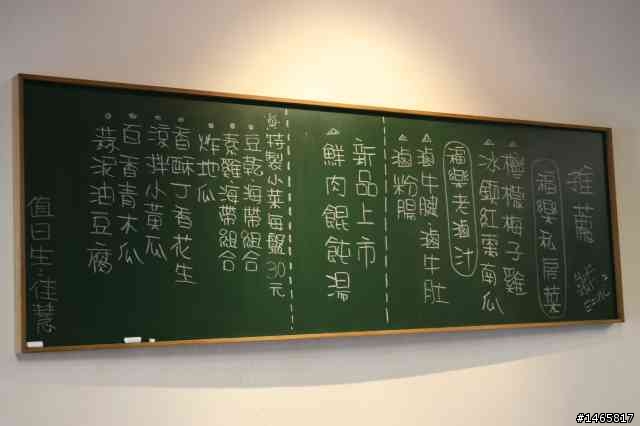 推薦
福樂私房菜
檸檬梅子雞
冰鎮紅棗南瓜
福樂老滷汁
滷牛腱 滷牛肚
滷粉腸
新品上市
鮮肉餛飩湯
特製小菜每盤30元
豆乾海帶組合
素雞海帶組合
炸地瓜
香酥丁香花生
涼拌小黃瓜
百香青木瓜
蒜泥油豆腐
值日生:佳慧
#1465817